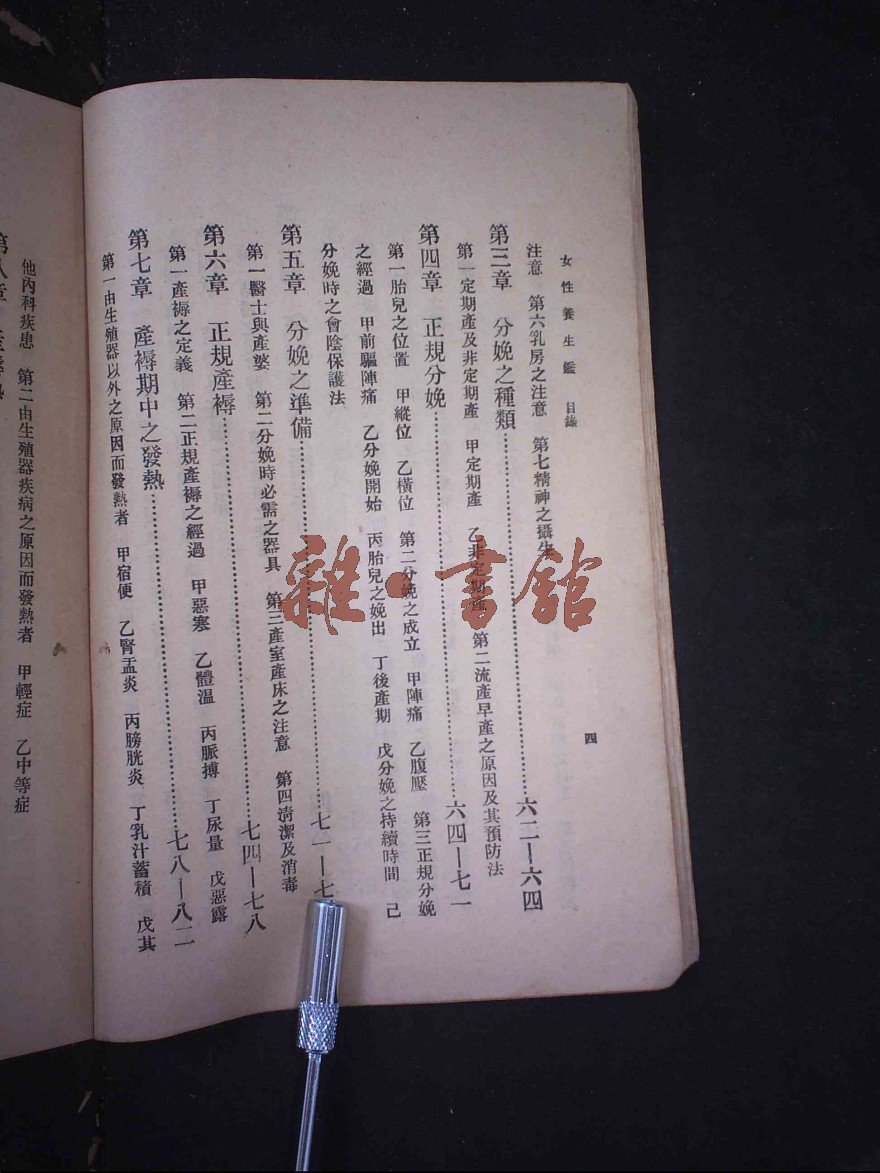 女性養生鑑　目錄
四
注意　第六乳房之注意　第七精神之攝生
第三章　分娩之種類……六二—六四
第一定期產及非定期產　甲定期產　乙非定期產　第二流產早產之原因及其預防法
第四章　正規分娩……六四—七一
第一胎兒之位置　甲縱位　乙橫位　第二分娩之成立　甲陣痛　乙腹壓　第三正規分娩
之經過　甲前驅陣痛　乙分娩開始　丙胎兒之娩出　丁後產期　戊分娩之持續時間　己
分娩時之會陰保護法
第五章　分娩之準備……七一—七
第一醫士與產婆　第二分娩時必需之器具　第三產室產床之注意　第四清潔及消毒
第六章　正規產褥……七四—七八
第一產褥之定義　第二正規產褥之經過　甲惡寒　乙體溫　丙脈搏　丁尿量　戊惡露
第七章　產褥期中之發熱……七八—八二
第一由生殖器以外之原因而發熱者　甲宿便　乙腎盂炎　丙膀胱炎　丁乳汁蓄積　戊其
他內科疾患　第二由生殖器疾病之原因而發熱者　甲輕症　乙中等症
第八章　產褥熱
雜·書館